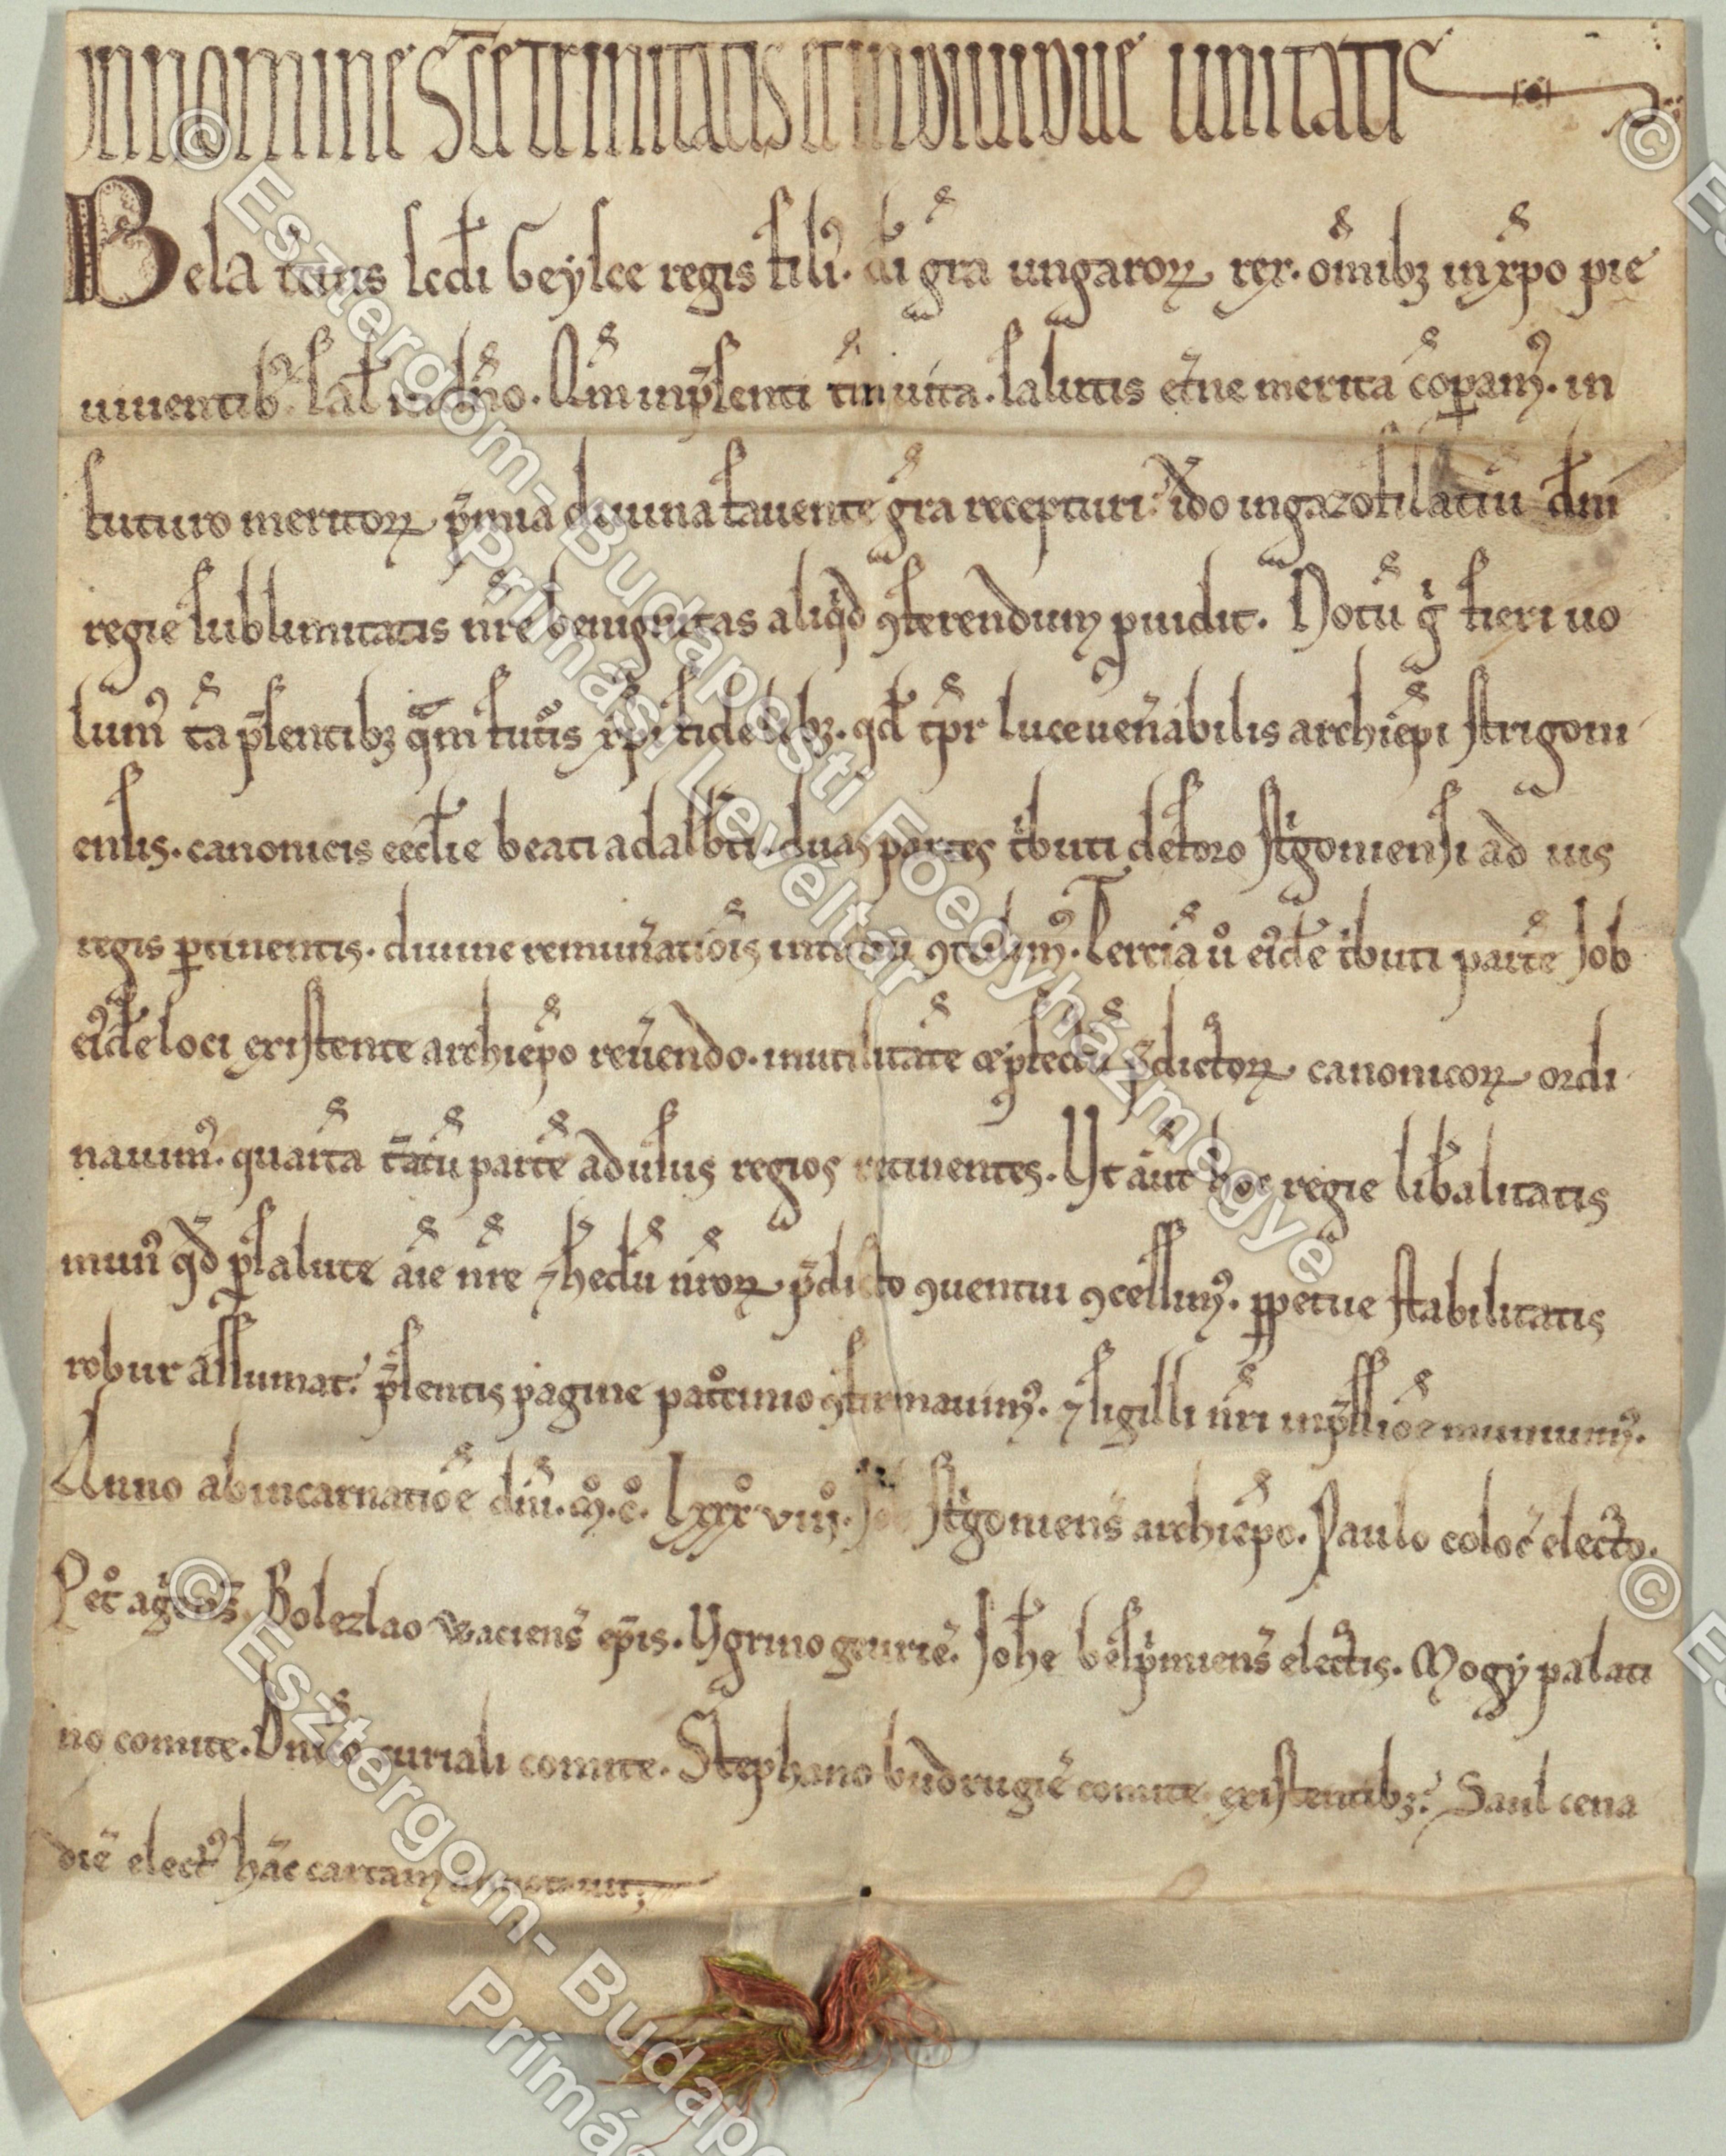 In nomine Sc̄e trinitatis et indiuidue unitatis
Bela tcius sc̄di Geyse regis filiꝰ. di gr̄a ungaroꝝ rex. om̄ibꝫ in xp̄o pie
uiuentibꝰ sal̄ in dn̄o. Qm̄ in p̄senti tm̄ uita. salutis et̄ne merita cōꝑamꝰ. in
futuro meritoꝝ p̄mia diuina fauente gr̄a recepturi. id̄o in gazofilaciū dn̄i
regie sublimitatis nr̄e benignitas aliq̇d ꝯferendum ꝓuidit. Notū g̊ fieri uo
lumꝰ tā p̄sentibꝫ q̄m futuris xp̄i fidelibꝫ. qđ tp̄r luce uen̄abilis archiep̄i strigoni
ensis. canonicis eccl̄ie beati adalb̄ti. duas partes tͥbuti de foro stͥgoniensi ad ius
regis ꝑtinentis. diuine remun̄atiōis intuitu ꝯtulimꝰ. Terciā ů eiꝰdē tͥbuti partē Job
eiꝰdē loci existente archiep̄o reu̅endo. in utilitatē ⁊ ꝓfectū p̄dictoꝝ canonicoꝝ ordi
nauimꝰ. quartā tātū partē ad usus regios retinentes. Vt aūt hoc regie lib̄alitatis
munꝰ qđ ꝓ salute aīe nr̄e ⁊ hedū nr̄oꝝ p̄dicto ꝯuentui ꝯcessimꝰ. ꝑpetue stabilitatis
robur assumat. p̄sentis pagine patͦcinio ꝯfirmauimꝰ. ⁊ sigilli nr̄i inp̄ssiōe muniuimꝰ.
Anno ab incarnatiōe dn̄i. m̊. c̊. lxxx̊ viiij. Job stͥgoniens̄ archiep̄o. Paulo coloc̄ electo.
Petͦ agͥens̄. Bolezlao waciens̄ ep̄is. Vgrino geurie. Joh̄e besp̄miens̄ electis. Mogy palati
no comite. Dn̄ico curiali comite. Stephano budrugie comite existentibꝫ. Saul cena
die electꝰ hāc cartam annotauit;
© Esztergom-Budapesti Főegyházmegye
Prímási Levéltár
© Esztergom-Budape
Prímás
© E
© E